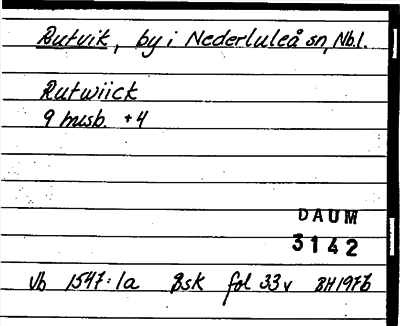 Rutvik, by i Nederluleå sn, Nb.l.
Rutwiick
9 husb. +4
DAUM
3142
Vb 1547:1a Bsk fol 33v BH1976